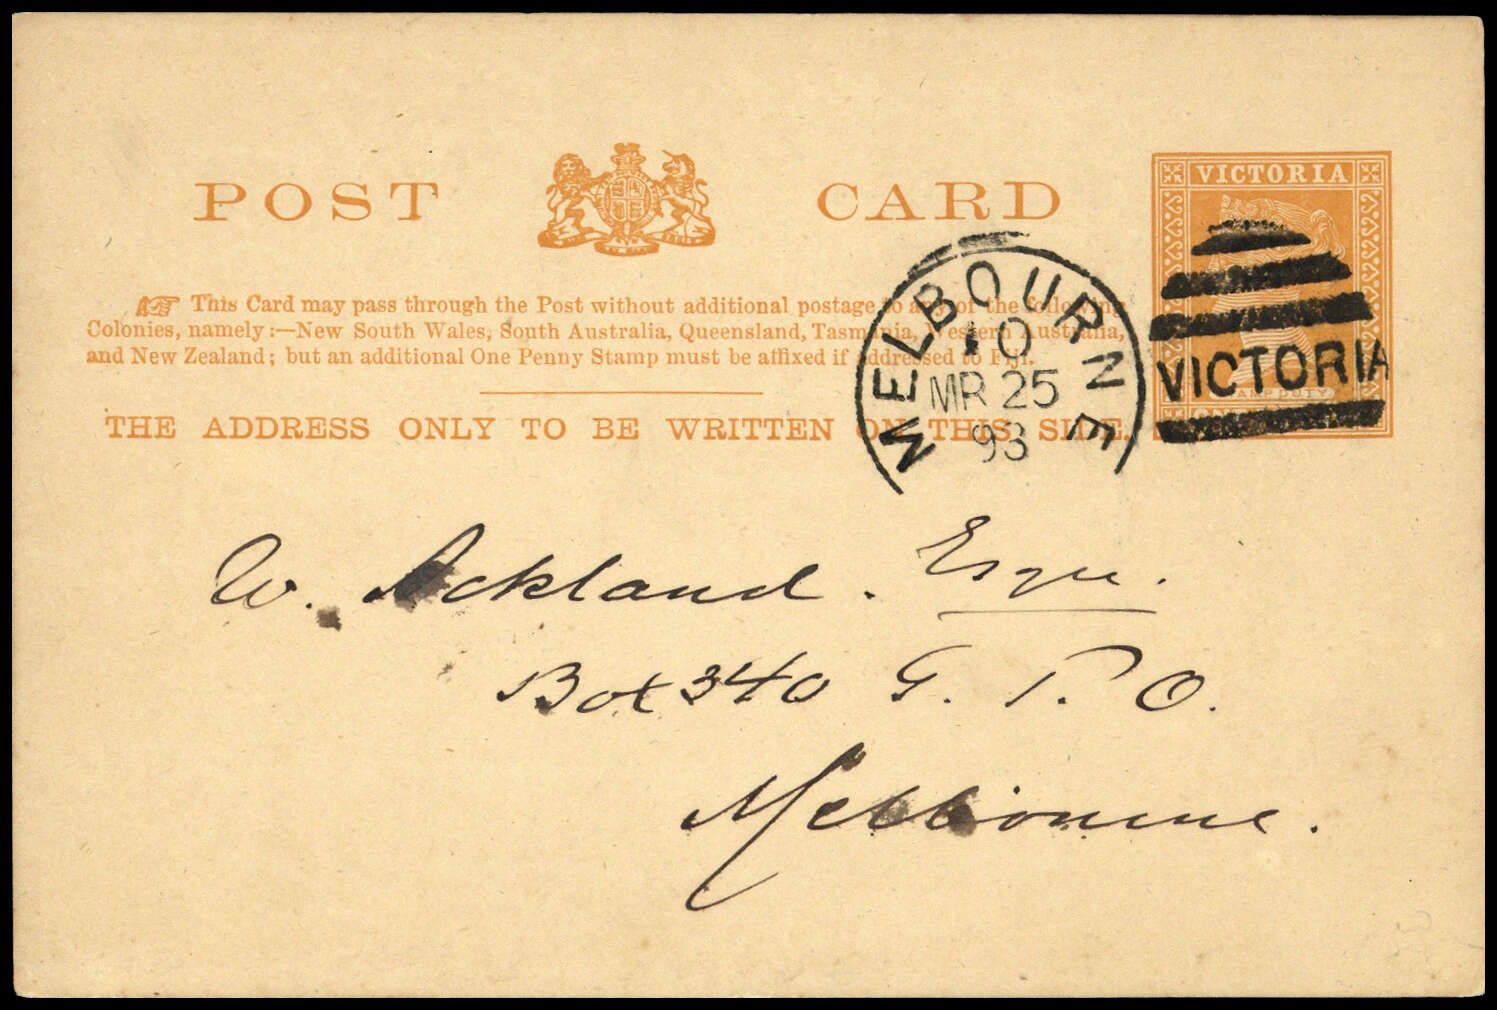 POST CARD
VICTORIA
This Card may pass through the Post without additional postage to any of the following
Colonies, namely:—New South Wales, South Australia, Queensland, Tasmania, Western Australia,
and New Zealand; but an additional One Penny Stamp must be affixed if addressed to Fiji.
THE ADDRESS ONLY TO BE WRITTEN ON THIS SIDE.
MELBOURNE
10
MR 25
93
VICTORIA
STAMP DUTY
W. Ackland. Esqre.
Box 340 G. P. O.
Melbourne.